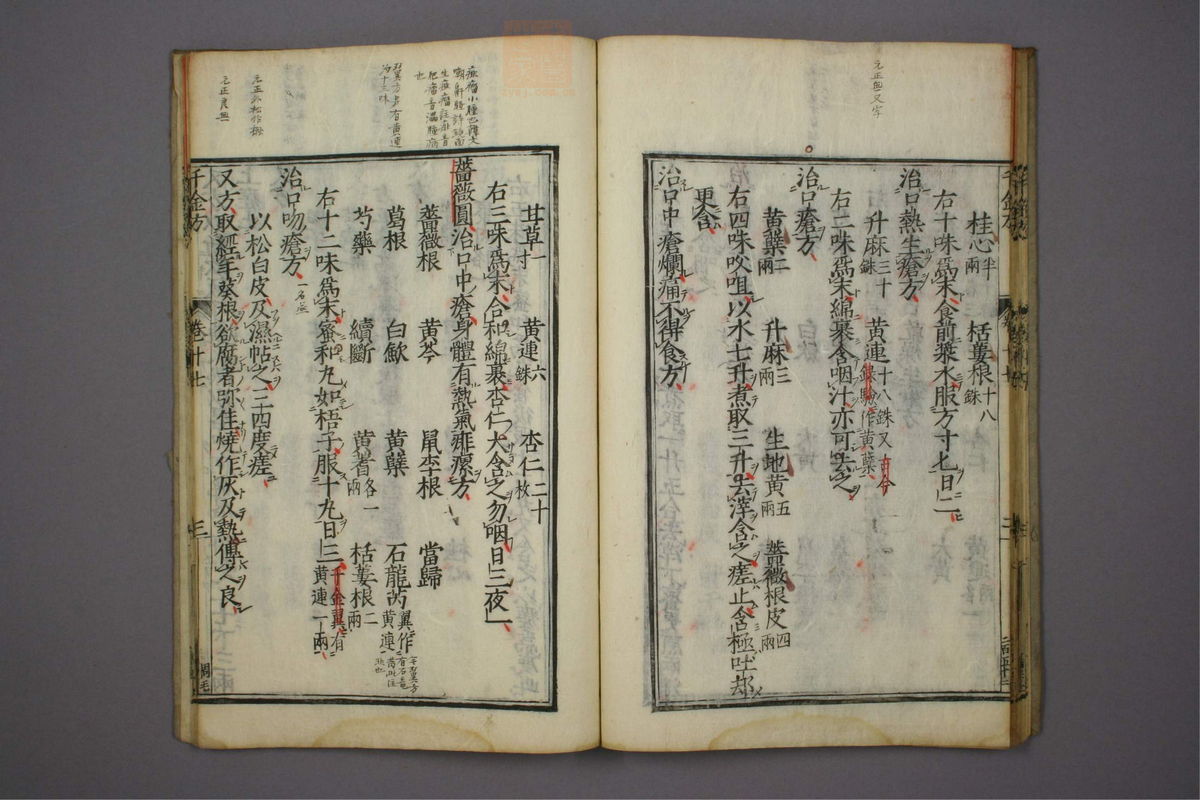 桂心半兩 栝蔞根十八銖
右十味爲末食前漿水服方寸匕日二
治口熱生瘡方
升麻三十銖 黄連十八銖又古今録驗作黄蘗
右二味爲末綿裹含咽汁亦可去之
治口瘡方
黄蘗二兩 升麻三兩 生地黄五兩 薔薇根皮四兩
右四味㕮咀以水七升煮取三升去滓含之瘥止含極吐却
更含
治口中瘡爛痛不得食方
元正無又字
千金方 卷十七 三
甘草一寸 黄連六銖 杏仁二十枚
右三味爲末合和綿裹杏仁大含之勿咽日三夜一
薔薇圓治口中瘡身體有熱氣痱瘰方
薔薇根 黄芩 鼠李根 當歸
葛根 白歛 黄蘗 石龍芮翼作黄連
芍藥 續斷 黄耆各一兩 栝蔞根二兩
右十二味爲末蜜和丸如梧子服十丸日三千金翼有黄連一兩
治口吻瘡方
以松白皮及濕帖之三四度瘥
又方取經年葵根欲腐者弥佳燒作灰及熱傅之良
千金方 卷十七 三